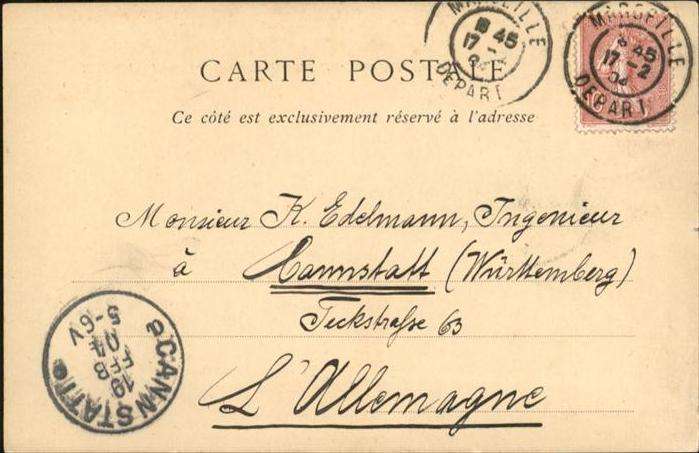 MARSEILLE
8 45
17 - 2
04
DEPART
MARSEILLE
8 45
17 - 2
04
DEPART
CARTE POSTALE
Ce côté est exclusivement réservé à l'adresse
Monsieur K. Edelmann, Ingenieur
à Cannstatt (Württemberg)
Teckstraße 63
L'Allemagne
CANNSTATT
19
FEB
04
5-6V